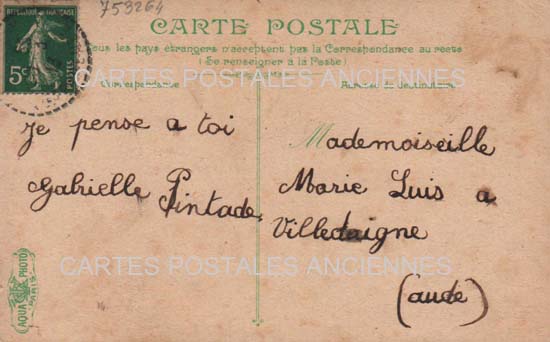 753264
RÉPUBLIQUE FRANÇAISE
5c
POSTES
CARTE POSTALE
Tous les pays étrangers n'acceptent pas la Correspondance au recto
(Se renseigner à la Poste)
CARTES POSTALES ANCIENNES
Correspondance
Adresse du destinataire
Je pense a toi
Gabrielle
Pintade
Mademoiselle
Marie Luis a
Villedaigne
(aude)
CARTES POSTALES ANCIENNES
AQUA PHOTO
PARIS